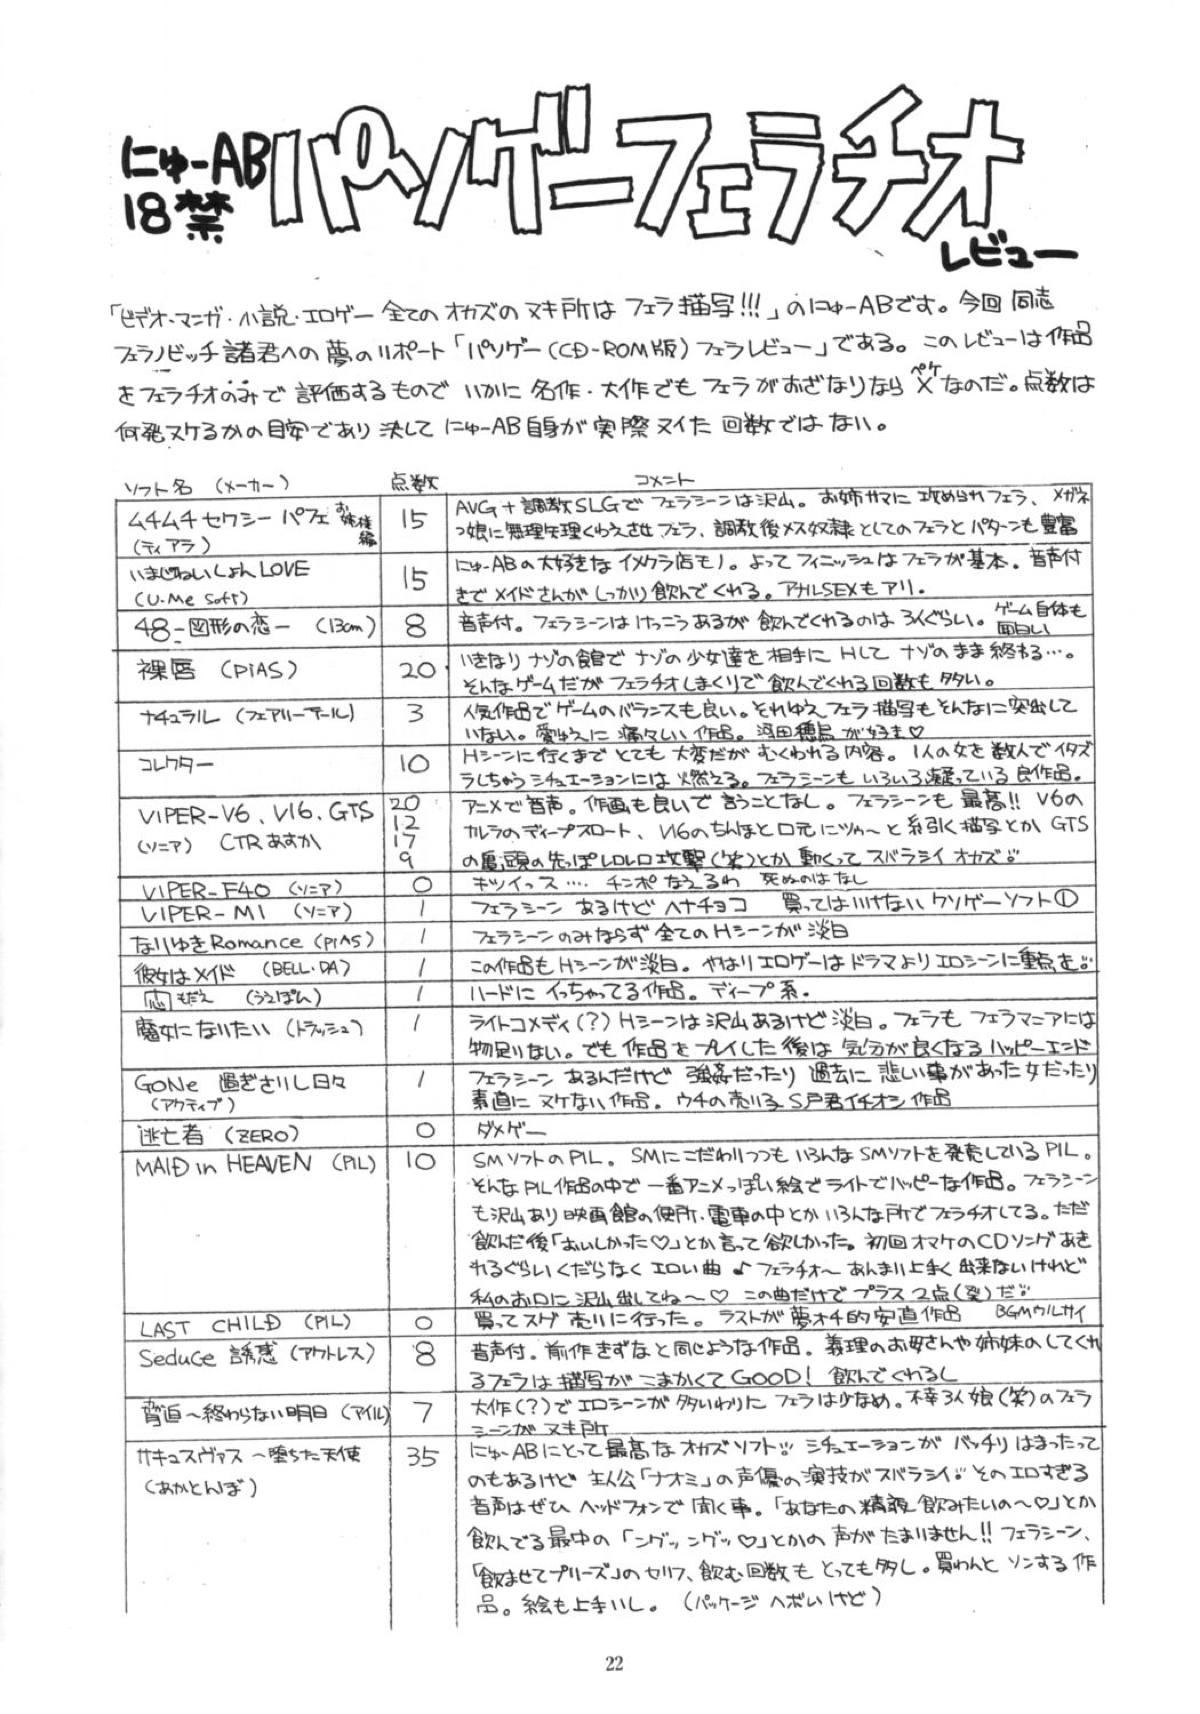 にゅーAB
18禁
パソゲーフェラチオ
レビュー
「ビデオ・マンガ・小説・エロゲー 全てのオカズのヌキ所は フェラ描写!!!」のにゅーABです。今回 同志
フェラノビッチ諸君への夢のリポート「パソゲー(CD-ROM版)フェラレビュー」である。このレビューは作品
をフェラチオのみで 評価するもので いかに 名作・大作でも フェラがおざなりなら ×(ペケ)なのだ。点数は
何発ヌケるかの目安であり 決して にゅーAB自身が 実際 ヌイた 回数ではない。
ソフト名 (メーカー) 点数 コメント
ムチムチセクシー パフェ お姉様編
(ティアラ)
15
AVG+調教SLGで フェラシーンは沢山。お姉サマに 攻められフェラ、メガネ
っ娘に無理矢理くわえさせフェラ、調教後メス奴隷としてのフェラとパターンも豊富
いまじねいしょんLOVE
(U・Me Soft)
15
にゅーABの大好きなイメクラ店もノ。よってフィニッシュはフェラが基本。音声付
きでメイドさんがしっかり飲んでくれる。アナルSEXもアリ.
48-図形の恋- (13cm)
8
音声付。フェラシーンは けっこうあるが 飲んでくれるのは 3人ぐらい。ゲーム自体も
面白い
裸唇 (PIAS)
20
いきなり ナゾの館で ナゾの少女達を相手に Hして ナゾのまま終わる…。
そんなゲームだが フェラチオしまくりで飲んでくれる回数も多い。
ナチュラル (フェアリーテール)
3
人気作品でゲームのバランスも良い。それゆえフェラ描写もそんなに突出して
いない。愛ゆえに 痛々しい 作品。河田穂鳥が好き♡
コレクター
10
Hシーンに行くまで とても 大変だが むくわれる内容。1人の女を数人でイタズ
ラしちゃうシチュエーションには燃える。フェラシーンもいろいろ凝っている良作品。
VIPER-V6、V16、GTS
(ソニア) CTRあすか
20
12
17
9
アニメで音声。作画も良いで言うことなし。フェラシーンも 最高!! V6の
カルラのディープスロート、V16のちんほと口元にツゥ〜と糸引く描写とか GTS
の亀頭の先っぽレロレロ攻撃(笑)とか 動くって スバラシイ オカズ!!
VIPER-F40 (ソニア)
0
キツイっス…. チンポ なえるわ 死ぬのはなし
VIPER-M1 (ソニア)
1
フェラシーン あるけど ヘナチョコ 買ってはいけない クソゲーソフト①
なりゆきRomance (PIAS)
1
フェラシーンのみならず全てのHシーンが淡白
彼女はメイド (BELL・DA)
1
この作品もHシーンが淡白。やはりエロゲーはドラマよりエロシーンに重点を!!
もだえ (うえぽん)
1
ハードにイっちゃってる作品。ディープ系.
魔女になりたい (トラッシュ)
1
ライトコメディ(?)Hシーンは沢山あるけど淡白。フェラも フェラマニアには
物足りない。でも 作品をプレイした後は 気分が良くなる ハッピーエンド
GONe 過ぎさりし日々
(アクティブ)
1
フェラシーン あるんだけど 強姦だったり 過去に 悲しい事があった女だったり
素直に ヌケない作品。ウチの売り子 S戸君イチオシ作品
逃亡者 (ZERO)
0
ダメゲー
MAID in HEAVEN (PIL)
10
SMソフトのPIL。SMにこだわりつつもいろんなSMソフトを発売しているPIL。
そんなPIL作品の中で 一番アニメっぽい絵でライトでハッピーな作品。フェラシーン
も沢山あり映画館の便所、電車の中とかいろんな所でフェラチオしてる。ただ
飲んだ後「おいしかった♡」とか言って欲しかった。初回オマケのCDソングあき
れるぐらいくだらなく エロい曲 ♪ フェラチオ〜 あんまり上手く 出来ないけれど
私のお口に沢山出してね〜♡ この曲だけで プラス2点(爆)だ!!
LAST CHILD (PIL)
0
買ってスグ 売りに行った。ラストが夢オチ的安直作品 BGMウルサイ
Seduce 誘惑 (アウトレス)
8
音声付。前作きずなと同じような作品。義理のお母さんや姉妹のしてくれ
るフェラは描写がこまかくてGOOD! 飲んでくれるし
脅迫〜終わらない明日 (アイル)
7
大作(?)でエロシーンが多いわりに フェラは少なめ。不幸3人娘(笑)のフェラ
シーンがヌキ所
サキュスヴァス 〜堕ちた天使
(あかとんぼ)
35
にゅーABにとって最高なオカズソフト!! シチュエーションが バッチリはまったって
のもあるけど 主人公「ナオミ」の声優の演技がスバラシイ!! そのエロすぎる
音声はぜひ ヘッドフォンで 聞く事。「あなたの精液 飲みたいの〜♡」とか
飲んでる最中の「ングッ ングッ♡」とかの 声がたまりません!! フェラシーン、
「飲ませてプリーズ」のセリフ、飲む回数も とっても多し。買わんと ソンする作
品。絵も上手いし。 (パッケージ ヘボいけど)
22